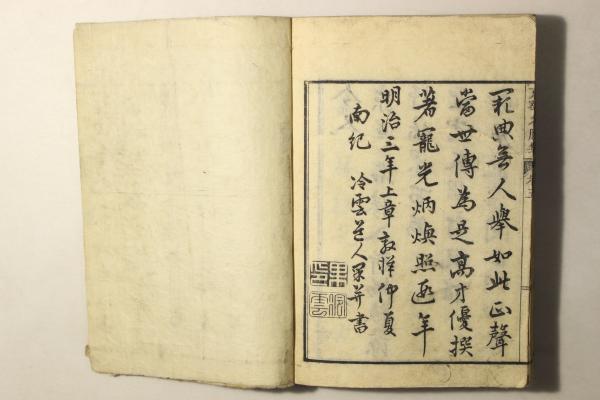 典無人舉如此正聲
當世傳為是高才優撰
著寵光炳煥照遐年
明治三年上章敦牂仲夏
南紀 冷雲道人杲并書